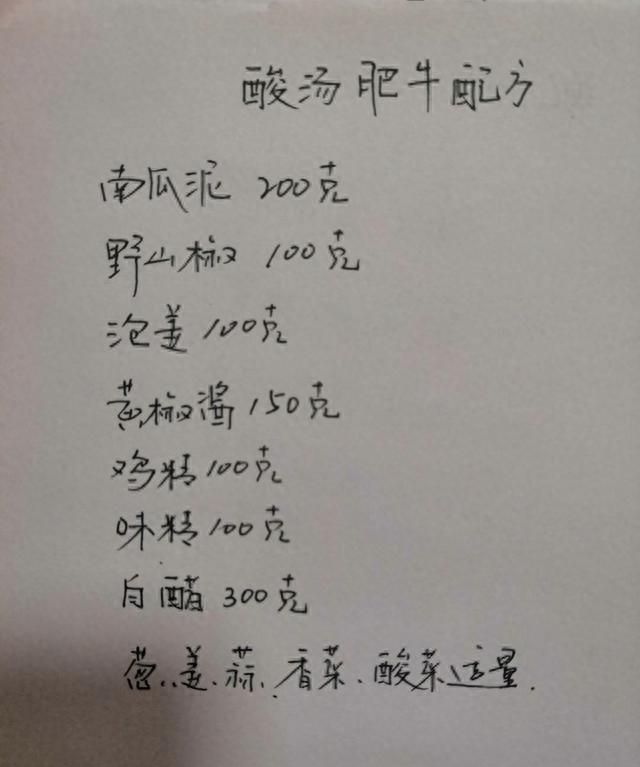 酸汤肥牛配方
南瓜泥 200克
野山椒 100克
泡姜 100克
黄椒酱 150克
鸡精 100克
味精 100克
白醋 300克
葱、姜、蒜、香菜、酸菜适量.